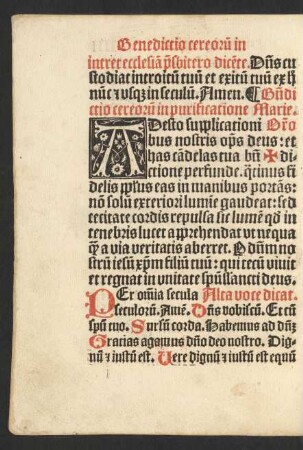 Benedictio cereorũ in
intret ecclesiã p̃sbitero dicẽte. Dñs cu
stodiat introitũ tuũ et exitũ tuũ ex h
nũc ⁊ vsqꝫ in seculũ. Amen. ¶ Bñdi
ctio cereorũ in purificatione Marie.
ADesto supplicationi Oro̅
bus nostris op̃s deus: et
has cãdelas tua bñ ✠ di
ctione perfunde. q̃tinus fi
delis pp̃lus eas in manibus portãs:
nõ solũ exteriori lumĩe gaudeat: sed
tetritate cordis repulsa sic lumẽ qd̃ in
tenebris lucet apprehendat vt nequa
q̃ a via veritatis aberret. P dñm no
strũ iesũ xp̃m filiũ tuũ: qui tecũ viuit
et regnat in vnitate sp̃ussancti deus.
PEr oĩa secula Alta voce dicat.
seculorũ. Amẽ. Dñs vobiscũ. Et cũ
spũ tuo. Sursũ corda. Habemus ad dñꝫ
Gracias agamus dño deo nostro. Dig-
nũ ⁊ iustũ est. Vere dignũ ⁊ iustũ est equũ